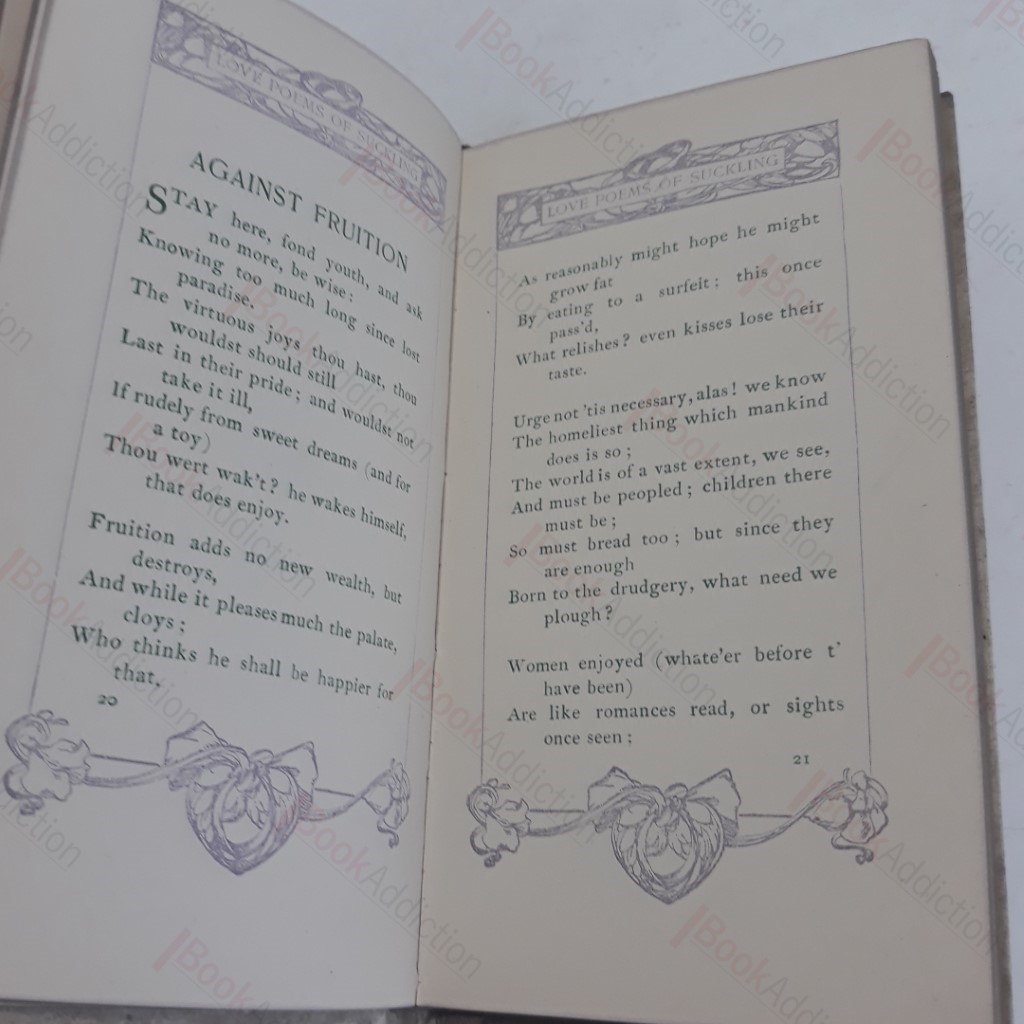 LOVE POEMS OF SUCKLING
AGAINST FRUITION
STAY here, fond youth, and ask
no more, be wise:
Knowing too much long since lost
paradise.
The virtuous joys thou hast, thou
wouldst should still
Last in their pride; and wouldst not
take it ill,
If rudely from sweet dreams (and for
a toy)
Thou wert wak't? he wakes himself,
that does enjoy.
Fruition adds no new wealth, but
destroys,
And while it pleases much the palate,
cloys;
Who thinks he shall be happier for
that,
20
LOVE POEMS OF SUCKLING
As reasonably might hope he might
grow fat
By eating to a surfeit: this once
pass'd,
What relishes? even kisses lose their
taste.
Urge not 'tis necessary, alas! we know
The homeliest thing which mankind
does is so;
The world is of a vast extent, we see,
And must be peopled; children there
must be;
So must bread too; but since they
are enough
Born to the drudgery, what need we
plough?
Women enjoyed (whate'er before t'
have been)
Are like romances read, or sights
once seen:
21
BookAddiction